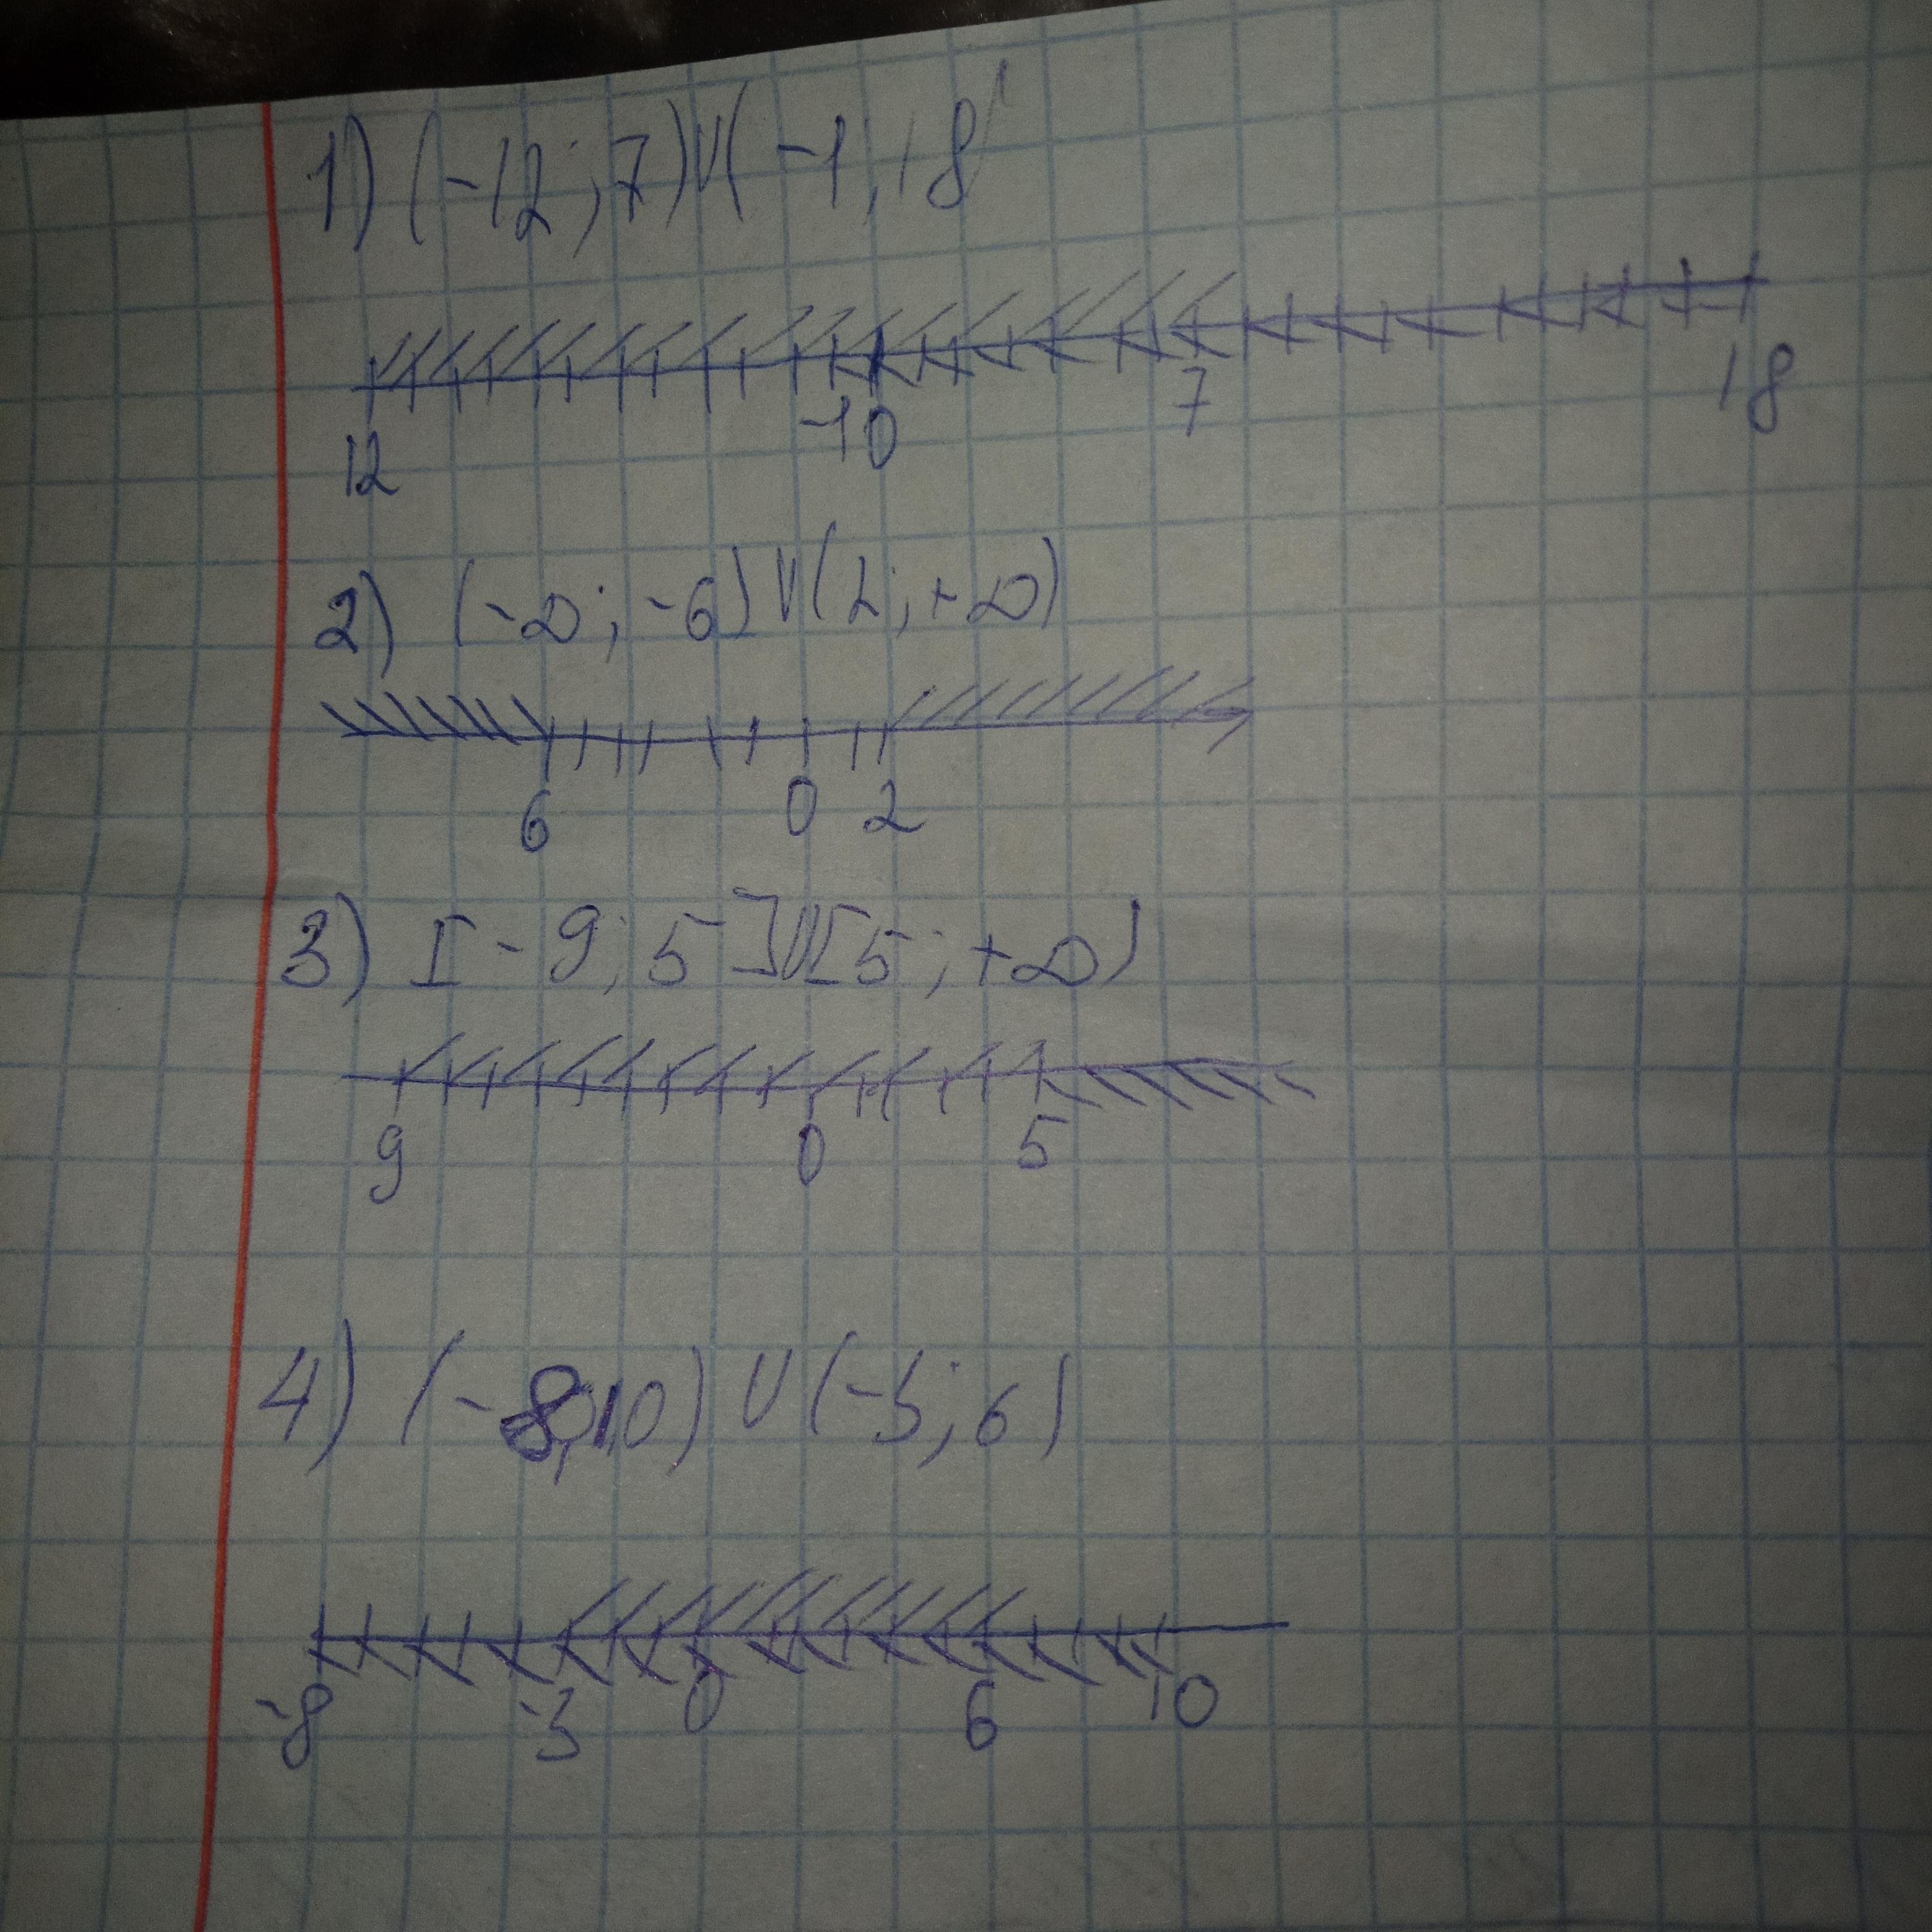 1) (-12; 7) U (-1; 18)
12 -1 0 7 18
2) (-∞; -6) U (2; +∞)
6 0 2
3) [-9; 5] U [5; +∞)
9 0 5
4) (-8; 10) U (-3; 6)
-8 -3 0 6 10